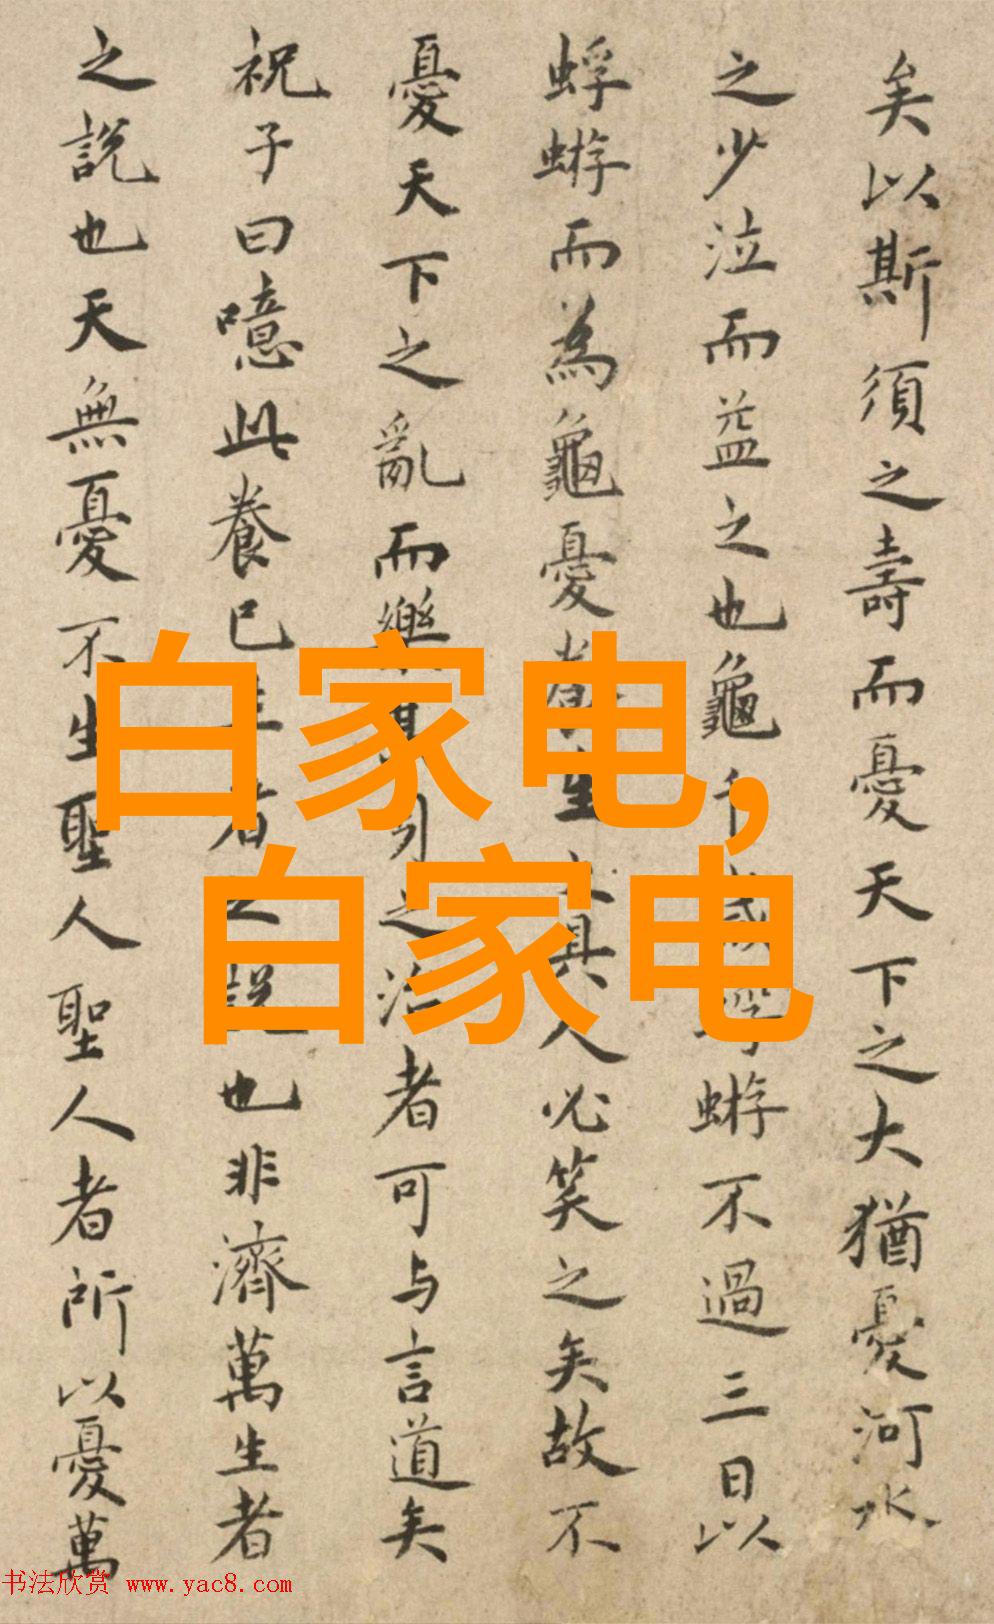 矣以斯須之壽而憂天下之大猶憂河水
之少泣而益之也龜千歲蜉蝣不過三日以
蜉蝣而為龜憂養生之具人必笑之矣故不
憂天下之亂而樂其身之治者可与言道矣
祝子曰噫此養已生者之說也非濟萬生者
之說也天無憂不生聖人聖人者所以憂萬
白家电,
白家电
书法欣赏 www.yac8.com